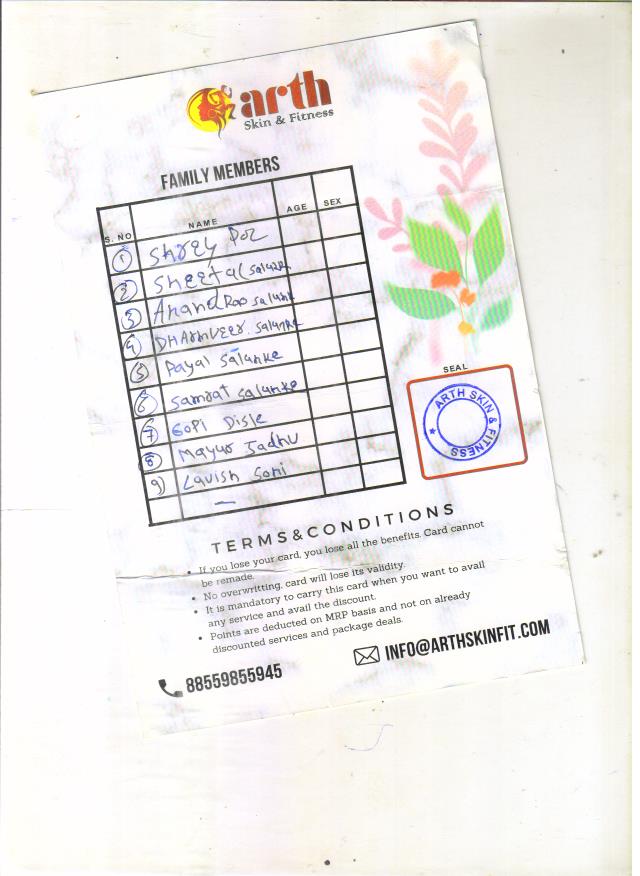 arth
Skin & Fitness
FAMILY MEMBERS
S. NO NAME AGE SEX
1 Shrey
2 Sheetal Salunke
3 Anand Rao Salunk
4 DHArmveer Salunke
5 Payal Salunke
6 Samrat Salunke
7 Gopi Disle
8 Mayur Jadhv
9 Lavish Soni
SEAL
ARTH SKIN & FITNESS
TERMS&CONDITIONS
• If you lose your card, you lose all the benefits. Card cannot
be remade.
• No overwritting, card will lose its validity.
• It is mandatory to carry this card when you want to avail
any service and avail the discount.
• Points are deducted on MRP basis and not on already
discounted services and package deals.
88559855945
INFO@ARTHSKINFIT.COM